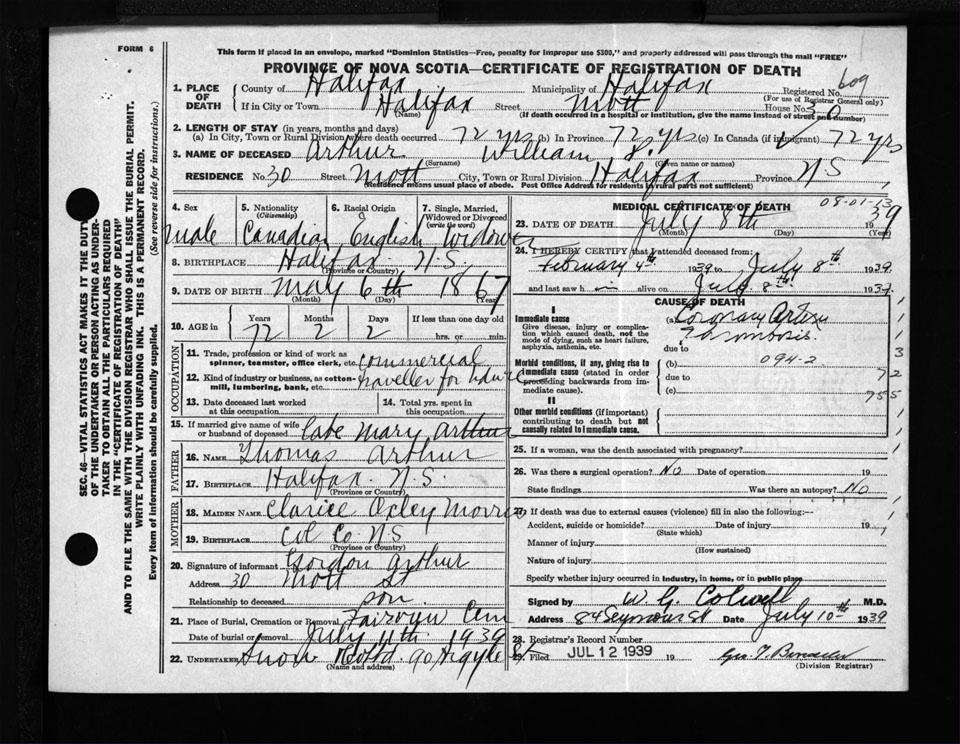 FORM 6
This form if placed in an envelope, marked "Dominion Statistics—Free, penalty for improper use $300," and properly addressed will pass through the mail "FREE"
PROVINCE OF NOVA SCOTIA—CERTIFICATE OF REGISTRATION OF DEATH
SEC. 46—VITAL STATISTICS ACT MAKES IT THE DUTY
OF THE UNDERTAKER OR PERSON ACTING AS UNDER-
TAKER TO OBTAIN ALL THE PARTICULARS REQUIRED
IN THE "CERTIFICATE OF REGISTRATION OF DEATH"
AND TO FILE THE SAME WITH THE DIVISION REGISTRAR WHO SHALL ISSUE THE BURIAL PERMIT.
WRITE PLAINLY WITH UNFADING INK. THIS IS A PERMANENT RECORD.
Every item of information should be carefully supplied. (See reverse side for instructions.)
1. PLACE OF DEATH County of Halifax Municipality of Halifax Registered No. 609
(For use of Registrar General only)
If in City or Town Halifax Street Mott House No. 30
(Name) (If death occurred in a hospital or institution, give the name instead of street and number)
2. LENGTH OF STAY (in years, months and days)
(a) In City, Town or Rural Division where death occurred 72 yrs (b) In Province 72 yrs (c) In Canada (if immigrant) 72 yrs
3. NAME OF DECEASED Arthur William J.
(Surname) (Given name or names)
RESIDENCE No. 30 Street Mott City, Town or Rural Division Halifax Province N S
(Residence means usual place of abode. Post Office Address for residents in rural parts not sufficient)
4. Sex male
5. Nationality (Citizenship) Canadian
6. Racial Origin English
7. Single, Married, Widowed or Divorced (write the word) Widower
8. BIRTHPLACE Halifax N.S.
(Province or Country)
9. DATE OF BIRTH May 6th 1867
(Month) (Day) (Year)
10. AGE in Years 72 Months 2 Days 2 If less than one day old
hrs. or min.
OCCUPATION
11. Trade, profession or kind of work as spinner, teamster, office clerk, etc. commercial
12. Kind of industry or business, as cotton-mill, lumbering, bank, etc. traveller for
13. Date deceased last worked at this occupation
14. Total yrs. spent in this occupation
15. If married give name of wife or husband of deceased Mary Arthur
FATHER
16. NAME Thomas Arthur
17. BIRTHPLACE Halifax N.S.
(Province or Country)
MOTHER
18. MAIDEN NAME Clarice Oxley Morris
19. BIRTHPLACE Col Co N S
(Province or Country)
20. Signature of informant Gordon Arthur
Address 30 Mott St
Relationship to deceased son
21. Place of Burial, Cremation or Removal Fairview Cem
Date of burial or removal July 11th 1939
22. UNDERTAKER Snow 90 Argyle
(Name and address)
MEDICAL CERTIFICATE OF DEATH
08-01-13
23. DATE OF DEATH July 8th 1939
(Month) (Day) (Year)
24. I HEREBY CERTIFY that I attended deceased from:
February 4th 1939 to July 8th 1939
and last saw him alive on July 8th 1939
CAUSE OF DEATH
I
Immediate cause
Give disease, injury or complication which caused death, not the mode of dying, such as heart failure, asphyxia, asthenia, etc.
(a) Coronary Artery Thrombosis
due to
Morbid conditions, if any, giving rise to immediate cause (stated in order proceeding backwards from immediate cause).
(b) 094-2
due to
(c)
3
72
755
II
Other morbid conditions (if important) contributing to death but not causally related to immediate cause.
25. If a woman, was the death associated with pregnancy?
26. Was there a surgical operation? No Date of operation 19
State findings Was there an autopsy? No
27. If death was due to external causes (violence) fill in also the following:—
Accident, suicide or homicide? Date of injury 19
(State which)
Manner of injury
(How sustained)
Nature of injury
Specify whether injury occurred in industry, in home, or in public place
Signed by W. G. Colwell M.D.
Address 84 Seymour St Date July 10th 1939
28. Registrar's Record Number
29. Filed JUL 12 1939 19
(Division Registrar)